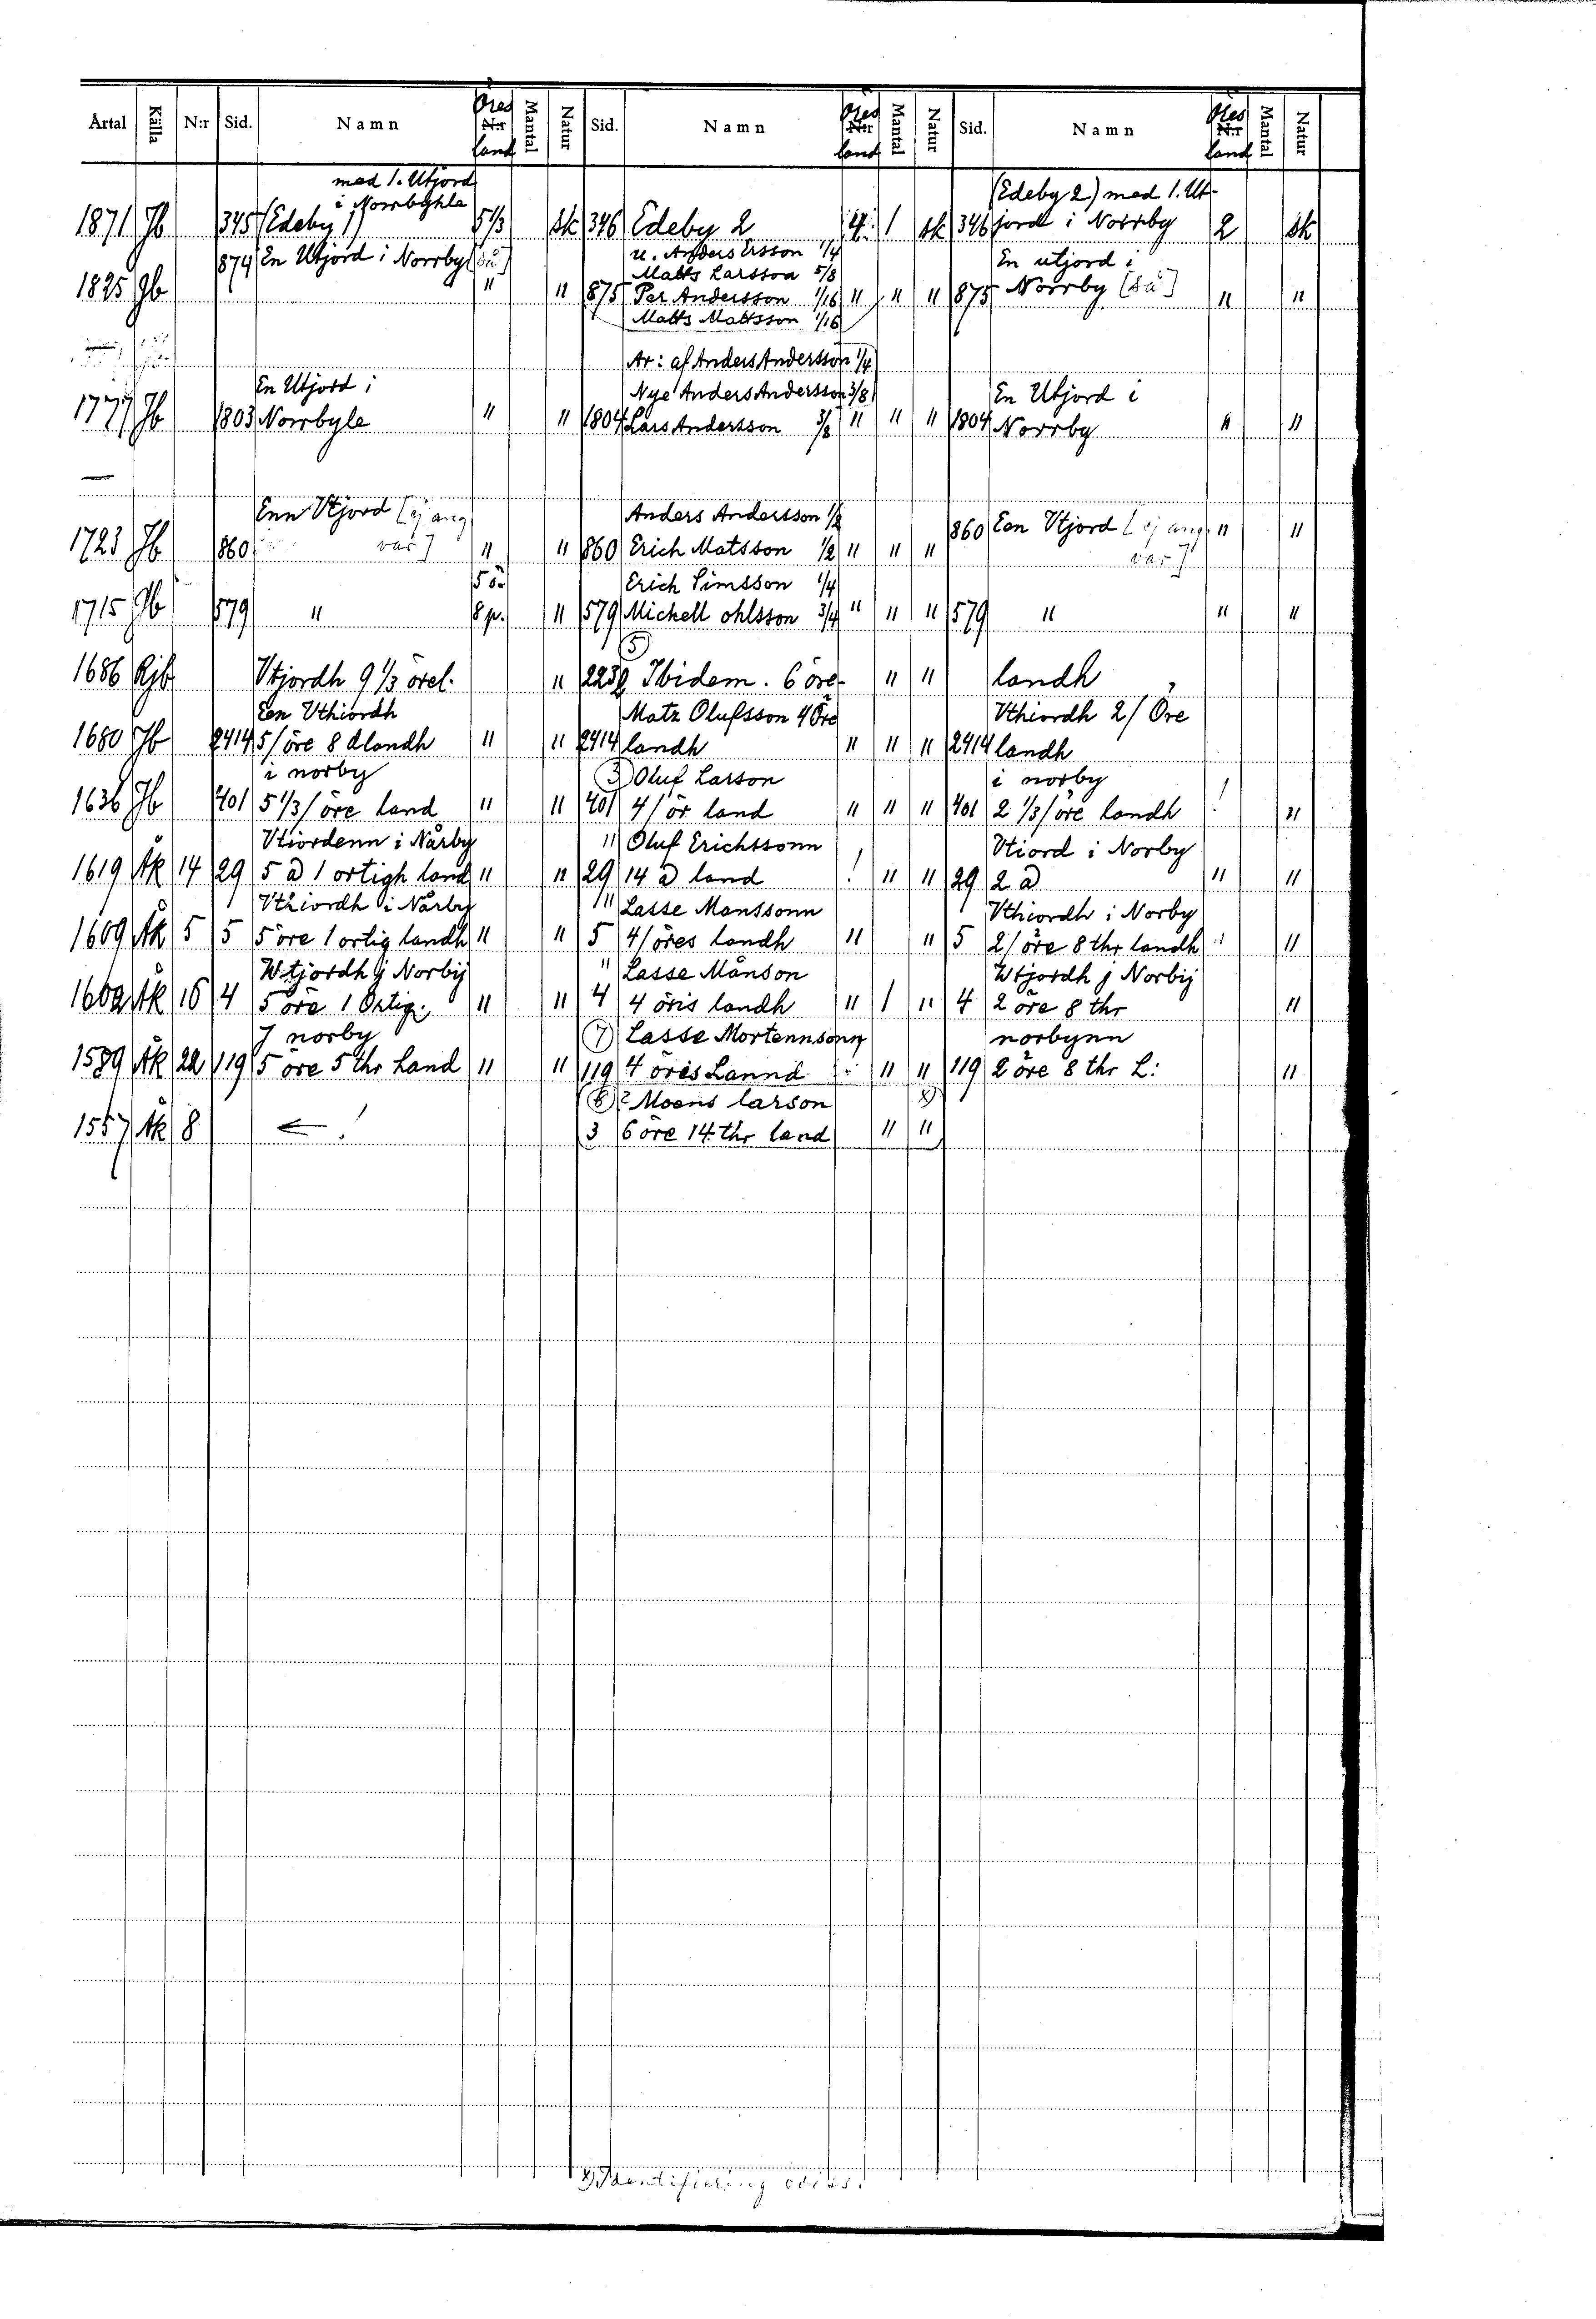 Öres Öres Öres
Årtal Källa N:r Sid. Namn N:r Mantal Natur Sid. Namn N:r Mantal Natur Sid. Namn N:r Mantal Natur
land land land
med 1. Utjord (Edeby 2) med 1. Ut-
i Norrbyhle
1871 Jb 345 (Edeby 1) 5 1/3 sk 346 Edeby 2 4 1 sk 346 jord i Norrby 2 sk
874 En Utjord i Norrby [så] u. Anders Ersson 1/4 En utjord i
Matts Larsson 5/8
1825 Jb " " 875 Per Andersson 1/16 " " " 875 Norrby [så] " "
Matts Mattsson 1/16
Ar: af Anders Andersson 1/4
En Utjord i Nye Anders Andersson 3/8 En Utjord i
1777 Jb 1803 Norrbyle " " 1804 Lars Andersson 3/8 " " " 1804 Norrby " "
Enn Vtjord [ej ang Anders Andersson 1/2 860 Een Vtjord [ej ang. " "
1723 Jb 860 var] " " 860 Erich Matsson 1/2 " " " var]
5 ö. Erich Simsson 1/4
1715 Jb 579 " 8 p. " 579 Michell ohlsson 3/4 " " " 579 " " "
5
1686 Rjb Vtjordh 9 1/3 örel. " 2232 Ibidem. 6 öre " " landh
Een Vthiordh Matz Olufsson 4 Öre Vthiordh 2/ Öre
1680 Jb 2414 5/ öre 8 dlandh " " 2414 landh " " " 2414 landh
i norby 3 Oluf Larson i norby
1636 Jb 401 5 1/3/ öre land " " 401 4/ ör land " " " 401 2 1/3/ öre landh ! "
Vtiordenn i Nårby " Oluf Erichssonn Vtiord i Norby
1619 Åk 14 29 5 a 1 ortigh land " " 29 14 a land ! " " 29 2 a " "
Vthiordh i Nårby " Lasse Månssonn Vthiordh i Norby
1609 Åk 5 5 5 öre 1 ortig landh " " 5 4/ öres landh " " 5 2/ öre 8 thr landh " "
Wtjordh j Norbij " Lasse Månson Wtjordh j Norbij
Åk 16 4 5 öre 1 Örtig. " " 4 4 öris landh " 1 " 4 2 öre 8 thr "
J norby 7 Lasse Mortennsonn norbynn
1589 Åk 22 119 5 öre 5 thr Land " " 119 4 öris Lannd " " " 119 2 öre 8 thr L: "
8 ? Moens larson x)
1557 Åk 8 ← ! 3 6 öre 14 thr land " "
x) Identifiering